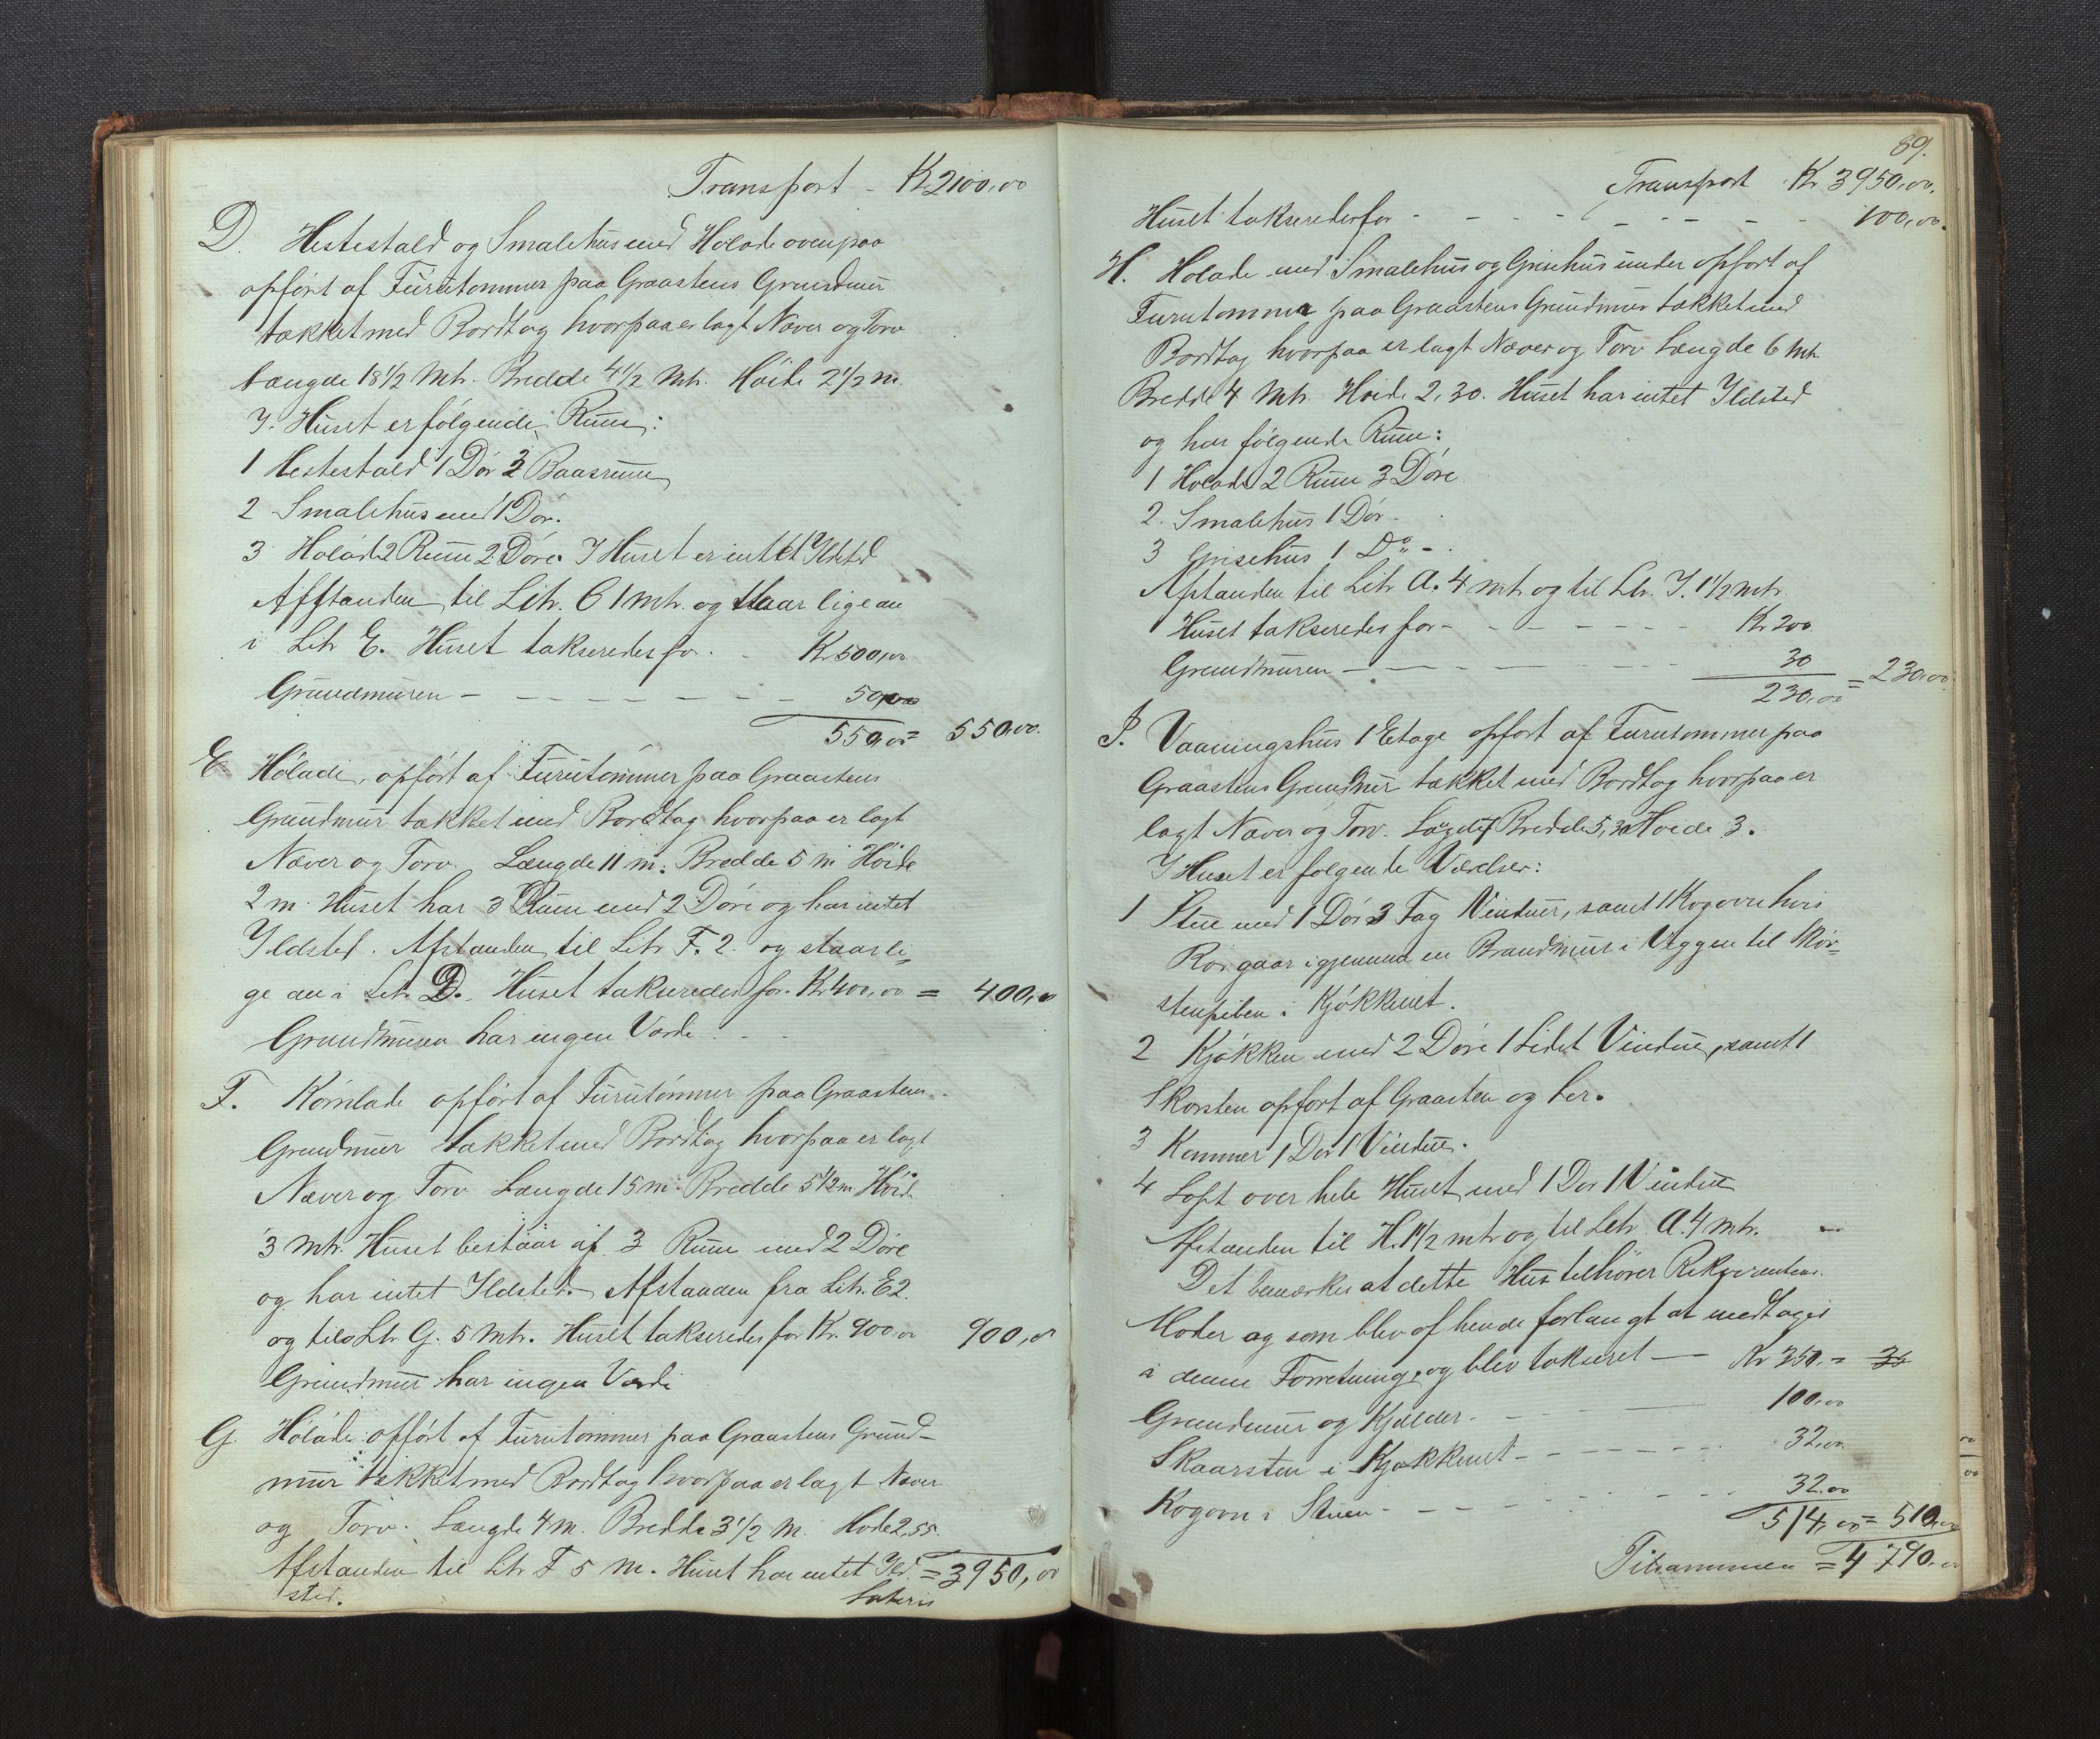 Transport - Kr 2100,00
D. Hestestald og Smalehus med Hölade ovenpaa
opfört af Furutömmer paa Graastens Grundmur
tækket med Bordtag hvorpaa er lagt Næver og Torv
Længde 18 1/2 Mtr. Bredde 4 1/2 Mtr. Höide 2 1/2 m.
I Huset er følgende Rum:
1 Hestestald 1 Dör 3 Baasrum
2 Smalehus med 1 Dör.
3 Hølade 2 Rum 2 Döre. I Huset er intet Ildsted
Afstanden til Litr. C 1 mtr. og staar lige an
i Litr E. Huset takseredes for - Kr 500,00
Grundmuren - - - - - - 50,00
550,00 = 550,00.
E Hölade, opfört af Furutömmer paa Graastens
Grundmur tækket med Bordtag hvorpaa er lagt
Næver og Torv. Længde 11 m. Bredde 5 m Höide
2 m. Huset har 3 Rum med 2 Döre og har intet
Ildsted. Afstanden til Litr F. 2. og staar li-
ge an i Litr. D. Huset takseredes for Kr 400,00 = 400,00
Grundmuren har ingen Værdi.
F. Kornlade opfört af Furutömmer paa Graastens
Grundmur tækket med Bordtag hvorpaa er lagt
Næver og Torv Længde 15 m. Bredde 5 1/2 m Höide
3 Mtr. Huset bestaar af 3 Rum med 2 Döre
og har intet Ildsted. Afstanden fra Litr. E 2.
og til Ltr G. 5 Mtr. Huset takseredes for Kr. 900,00 900,00
Grundmur har ingen Værdi
G. Hölade opfört af Furutömmer paa Graastens Grund-
mur tækket med Bordtag hvorpaa er lagt Næver
og Torv. Længde 4 m. Bredde 3 1/2 M. Höide 2,55.
Afstanden til Ltr F 5 M. Huset har intet Ild- = 3950,00
sted. Lateris
89.
Transport Kr 3950,00.
Huset takseredes for - - - - - - - 100,00.
H. Hølade med Smalehus og Grisehus under opfört af
Furutømmer paa Graastens Grundmur tækket med
Bordtag hvorpaa er lagt Næver og Torv Længde 6 Mtr
Bredde 4 Mtr. Høide 2,30. Huset har intet Ildsted
og har følgende Rum:
1 Hølade 2 Rum 3 Døre
2. Smalehus 1 Dör.
3 Grisehus 1 Do -.
Afstanden til Litr A. 4 mtr og til Ltr. I. 1 1/2 mtr.
Huset takseredes for - - - - - - - Kr 200
Grundmuren - - - - - - - 30
230,00 = 230,00
I. Vaaningshus 1 Etage opfort af Furutømmer paa
Graastens Grundmur tækket med Bordtag hvorpaa er
lagt Næver og Torv. Længde 7 Bredde 5,30 Høide 3.
I Huset er følgende Værelser:
1 Stue med 1 Dör 3 Fag Vinduer, samt 1 Kogovn hvis
Rör gaar igjennem en Brandmur i Veggen til Skor-
stenpiben i Kjøkkenet.
2 Kjøkken med 2 Døre 1 Lidet Vindue, samt 1
Skorsten opført af Graasten og Ler.
3 Kammer 1 Dør 1 Vindue.
4 Loft over hele Huset med 1 Dør 1 Vindue
Afstanden til H. 1 1/2 mtr og til Litr A. 4 mtr.
Det bemærkes at dette Hus tilhører Rekvirentens
Moder og som blev af hende forlangt at medtages
i denne Forretning, og blev takseret - Kr 350. = 35
Grundmur og Kjælder - - - - 100,00
Skaarsten i Kjøkkenet - - - - - - 32,00
Kogovn i Stuen - - - - - - - 32,00
514,00 = 510,00
Tilsammen = 4790,00